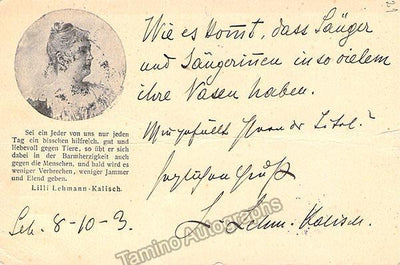 Wie es kommt, dass Sänger
und Sängerinnen in so vielem
ihre Nasen haben.
Sei ein Jeder von uns nur jeden
Tag ein bisschen hilfreich, gut und
liebevoll gegen Tiere, so übt er sich
dabei in der Barmherzigkeit auch
gegen die Menschen, und bald wird es
weniger Verbrechen, weniger Jammer
und Elend geben.
Lilli Lehmann-Kalisch.
8-10-3.
L. Lehm. Kalisch.
Tamino Autographs